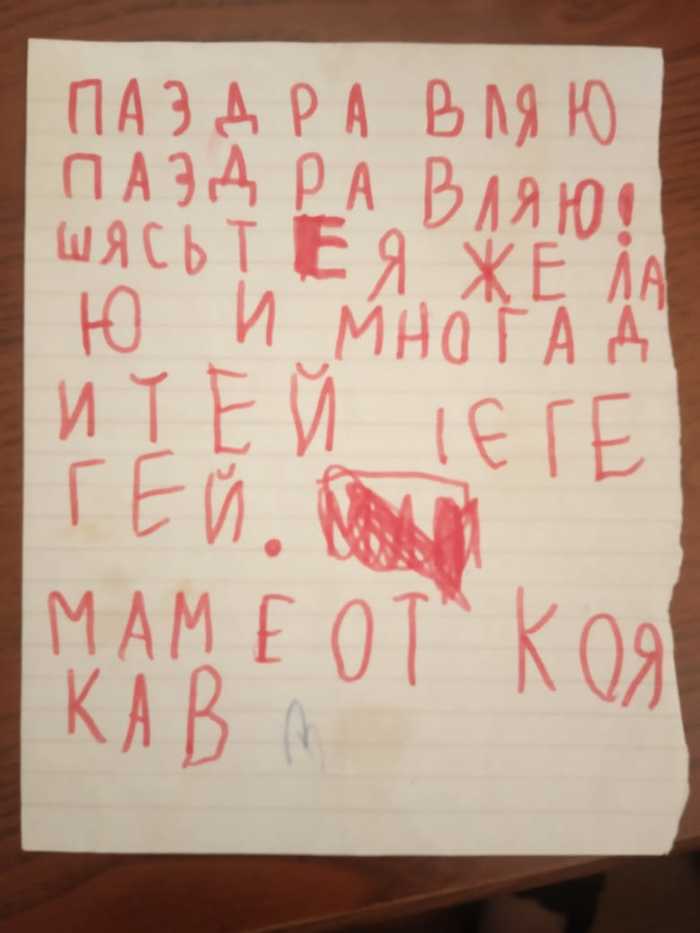 ПАЗДРА ВЛЯЮ
ПАЗДРА ВЛЯЮ!
ШЯСЬТЕ Я ЖЕЛА
Ю И МНОГА Д
ИТЕЙ ІЄГЕ
ГЕЙ.
МАМЕ ОТ КОЯ
КАВ